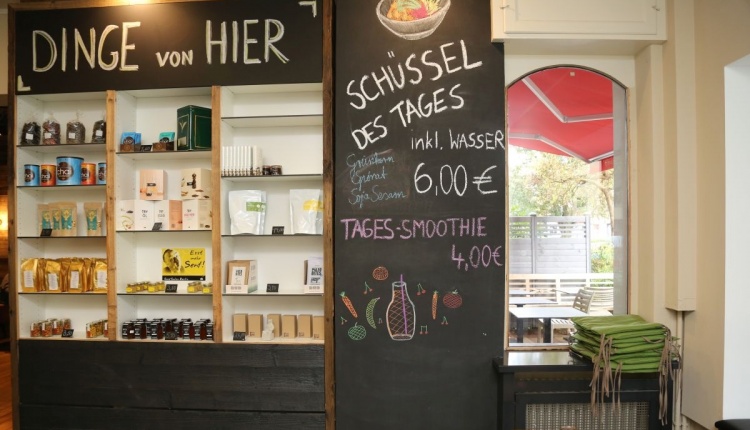 DINGE VON HIER
SCHÜSSEL
DES TAGES
inkl. WASSER
Grünkern
Spinat
Soja Sesam
6,00 €
TAGES-SMOOTHIE
4,00€
chai
Esst
mehr
Senf!